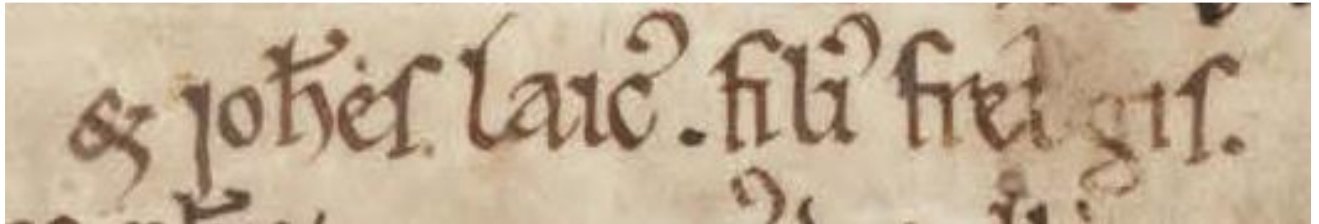 & joħes laicꝰ. filiꝰ frelgis.